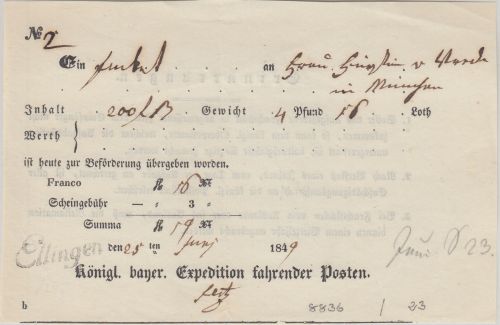 № 2
Ein Paket an Frau Fürstin v Wrede
in München
Inhalt 200 f Gewicht 4 Pfund 16 Loth
Werth
ist heute zur Beförderung übergeben worden.
Franco fl 16 Xr
Scheingebühr — „ 3 „
Summa fl 19 Xr
Ellingen den 25 ten Juni 1849
Königl. bayer. Expedition fahrender Posten.
b 8836 / 23